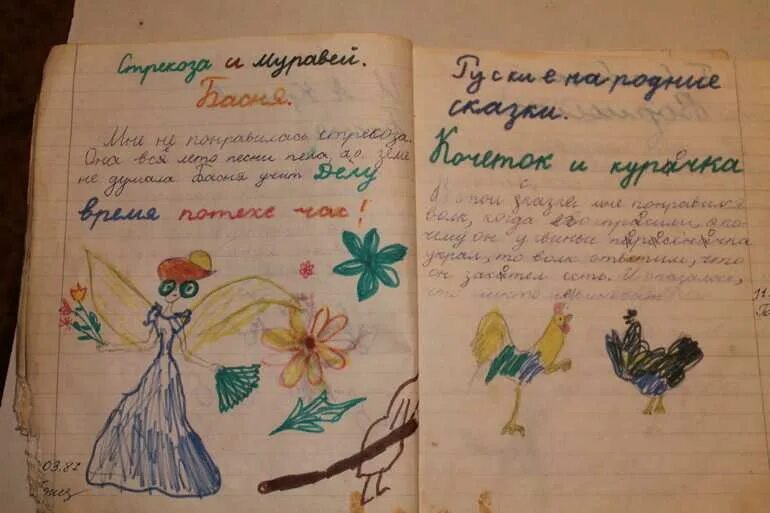 Стрекоза и Муравей.
Басня.
Мне не понравилась стрекоза.
Она всё лето песни пела, а о зиме
не думала басня учит Делу
время потехе час!
03.82
Руские народние
сказки.
Кочеток и курачка
В этой сказке мне понравился
волк, когда его спросили, а по
чему он у свиньи поросёначка
украл, то волк ответил, что
он захотел есть. И оказалось,
что никто не виноват
11.